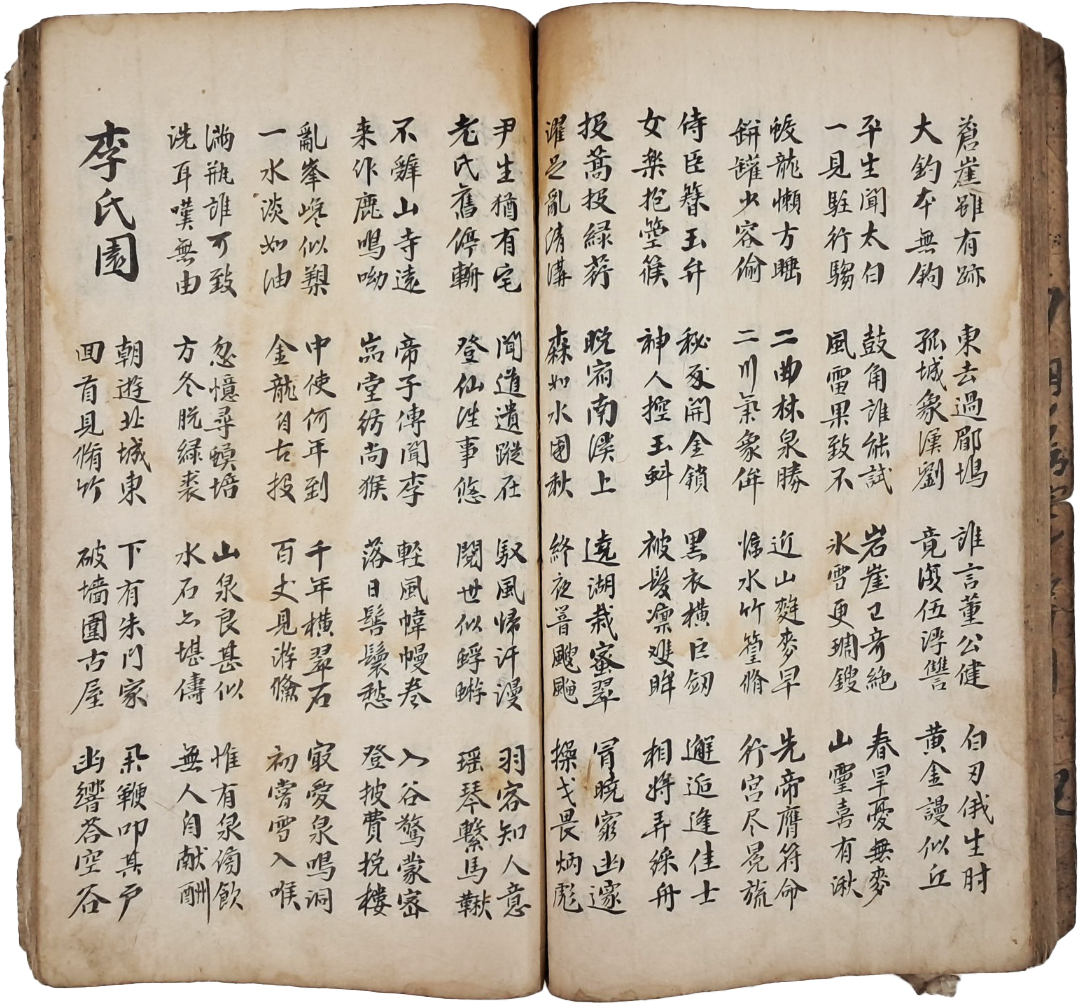 蒼崖雖有跡
大釣本無鈎
東去過郿塢
孤城象漢劉
誰言董公健
竟復伍浮讐
白刃俄生肘
黃金謾似丘
平生聞太白
一見駐行騶
鼓角誰能試
風雷果致不
岩崖已奇絶
氷雪更琱鎪
春旱憂無麥
山靈喜有湫
蛟龍懶方睡
缾罐少容偷
二曲林泉勝
二川氣象侔
近山麰麥早
臨水竹篁脩
先帝膺符命
行宮尽冕旒
侍臣簪玉弁
女樂抱箜篌
秘殿開金鎖
神人控玉虯
黑衣橫巨釼
被髮凜难眸
邂逅逢佳士
相將弄綵舟
投蒿投緑荇
濯足亂清溝
晩宿南溪上
森如水國秋
遶湖栽蜜翠
終夜響颼颼
冐曉窮幽邃
操戈畏炳彪
尹生猶有宅
老氏舊停斬
聞道遺蹤在
登仙往事悠
馭風歸汗漫
閱世似蜉蝣
羽客知人意
瑶琴繫馬鞦
不辭山寺遠
来作鹿鳴呦
帝子傳聞李
嵓堂髣尚猴
輕風幃幔卷
落日髻鬟愁
入谷驚蒙密
登披費挽摟
亂峯巉似槊
一水淡如油
中使何年到
金龍自古投
千年橫翠石
百丈見游鯈
㝡愛泉鳴洞
初嘗雪入喉
滿瓶誰可致
洗耳嘆無由
忽憶尋蟆培
方冬脫緑裘
山泉良甚似
水石亦堪儔
惟有泉傍飲
無人自献酬
李氏園
朝遊北城東
回首見脩竹
下有朱門家
破墻圍古屋
舉鞭叩其戶
幽響荅空谷